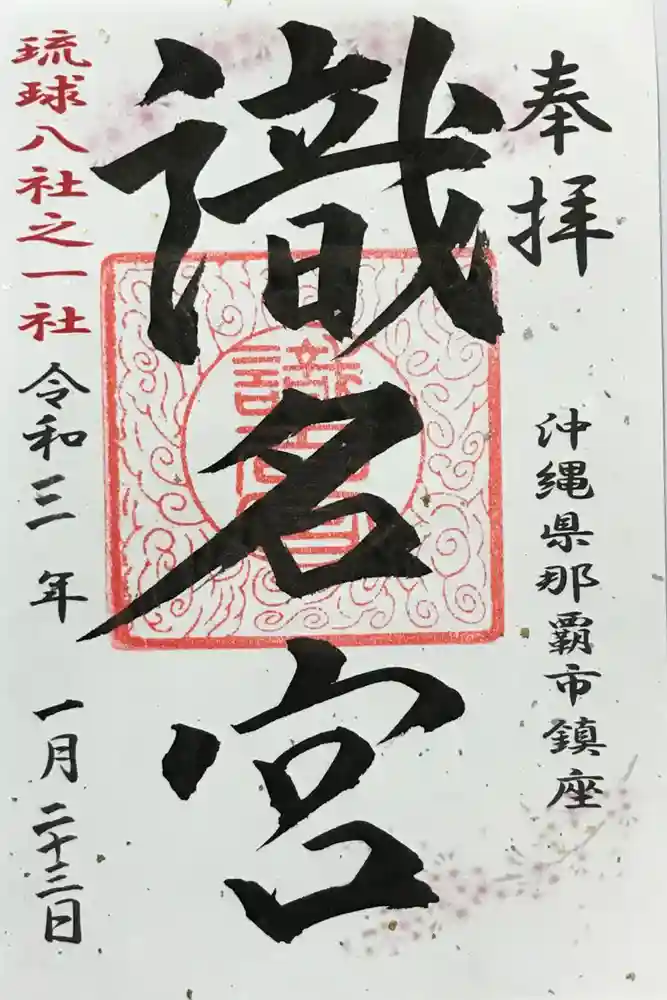 奉拝
沖縄県那覇市鎮座
識名宮
識名宮
琉球八社之一社
令和三年 一月二十三日